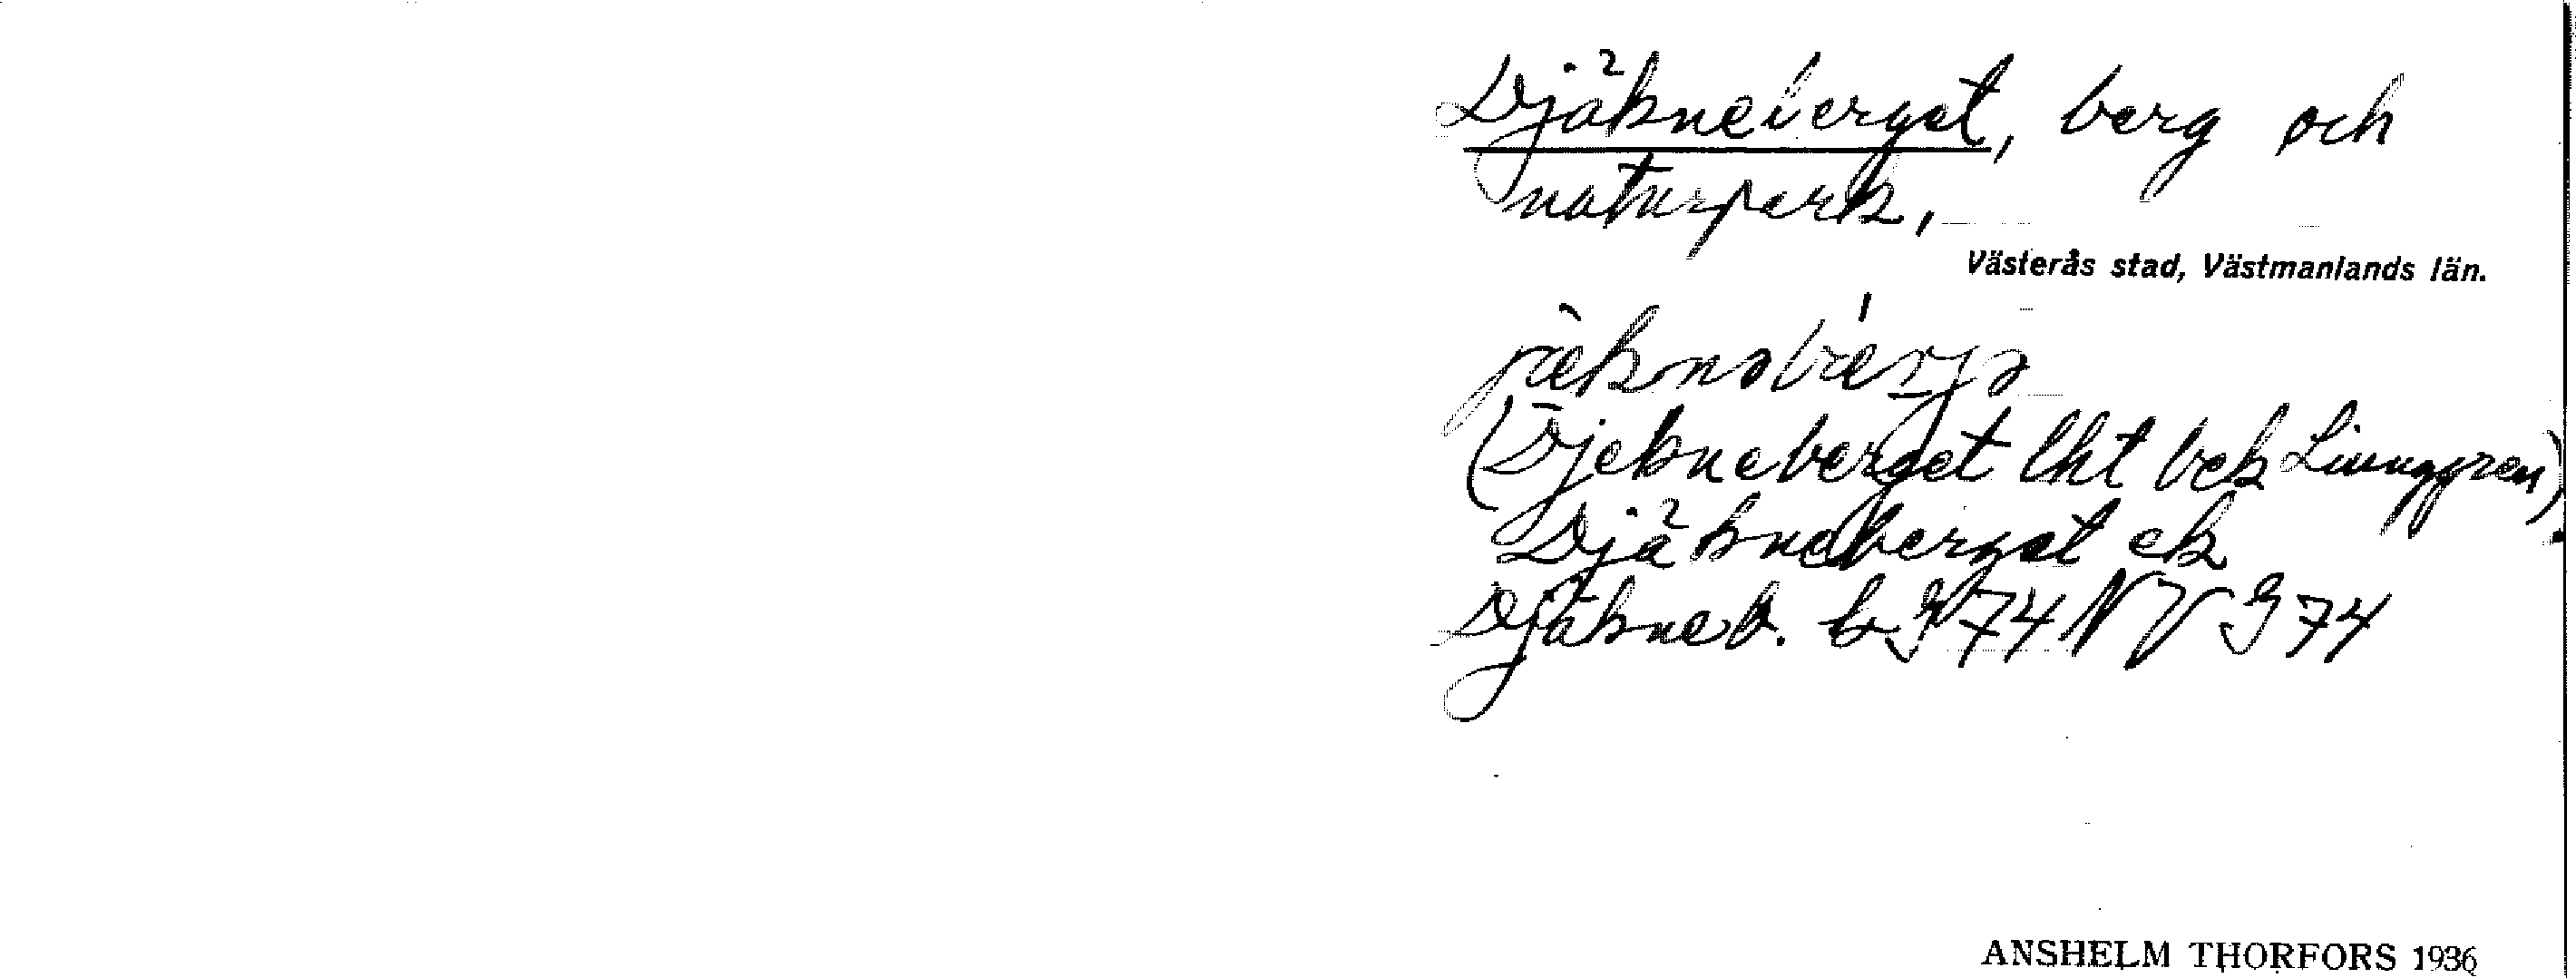 Djäkneberget, berg och
naturpark,
Västerås stad, Västmanlands län.
jæ̀knəbǽrjə
(Djekneberget lht bek Linnggren)
Djäkneberget ek
Djäkneb. bg 74 NV G 74
ANSHELM THORFORS 1936